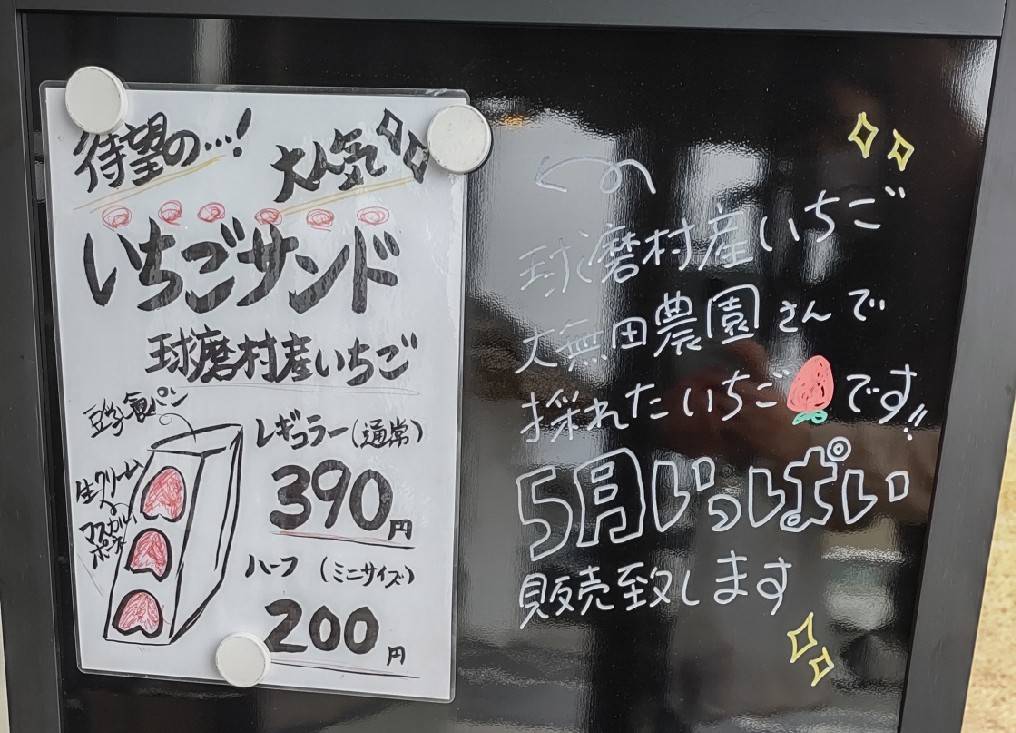 待望の…!
大人気
いちごサンド
球磨村産いちご
豆乳食パン
生クリーム
マスカルポーネ
レギュラー(通常)
390円
ハーフ (ミニサイズ)
200円
球磨村産いちご
大無田農園さんで
採れたいちごです!!
5月いっぱい
販売致します